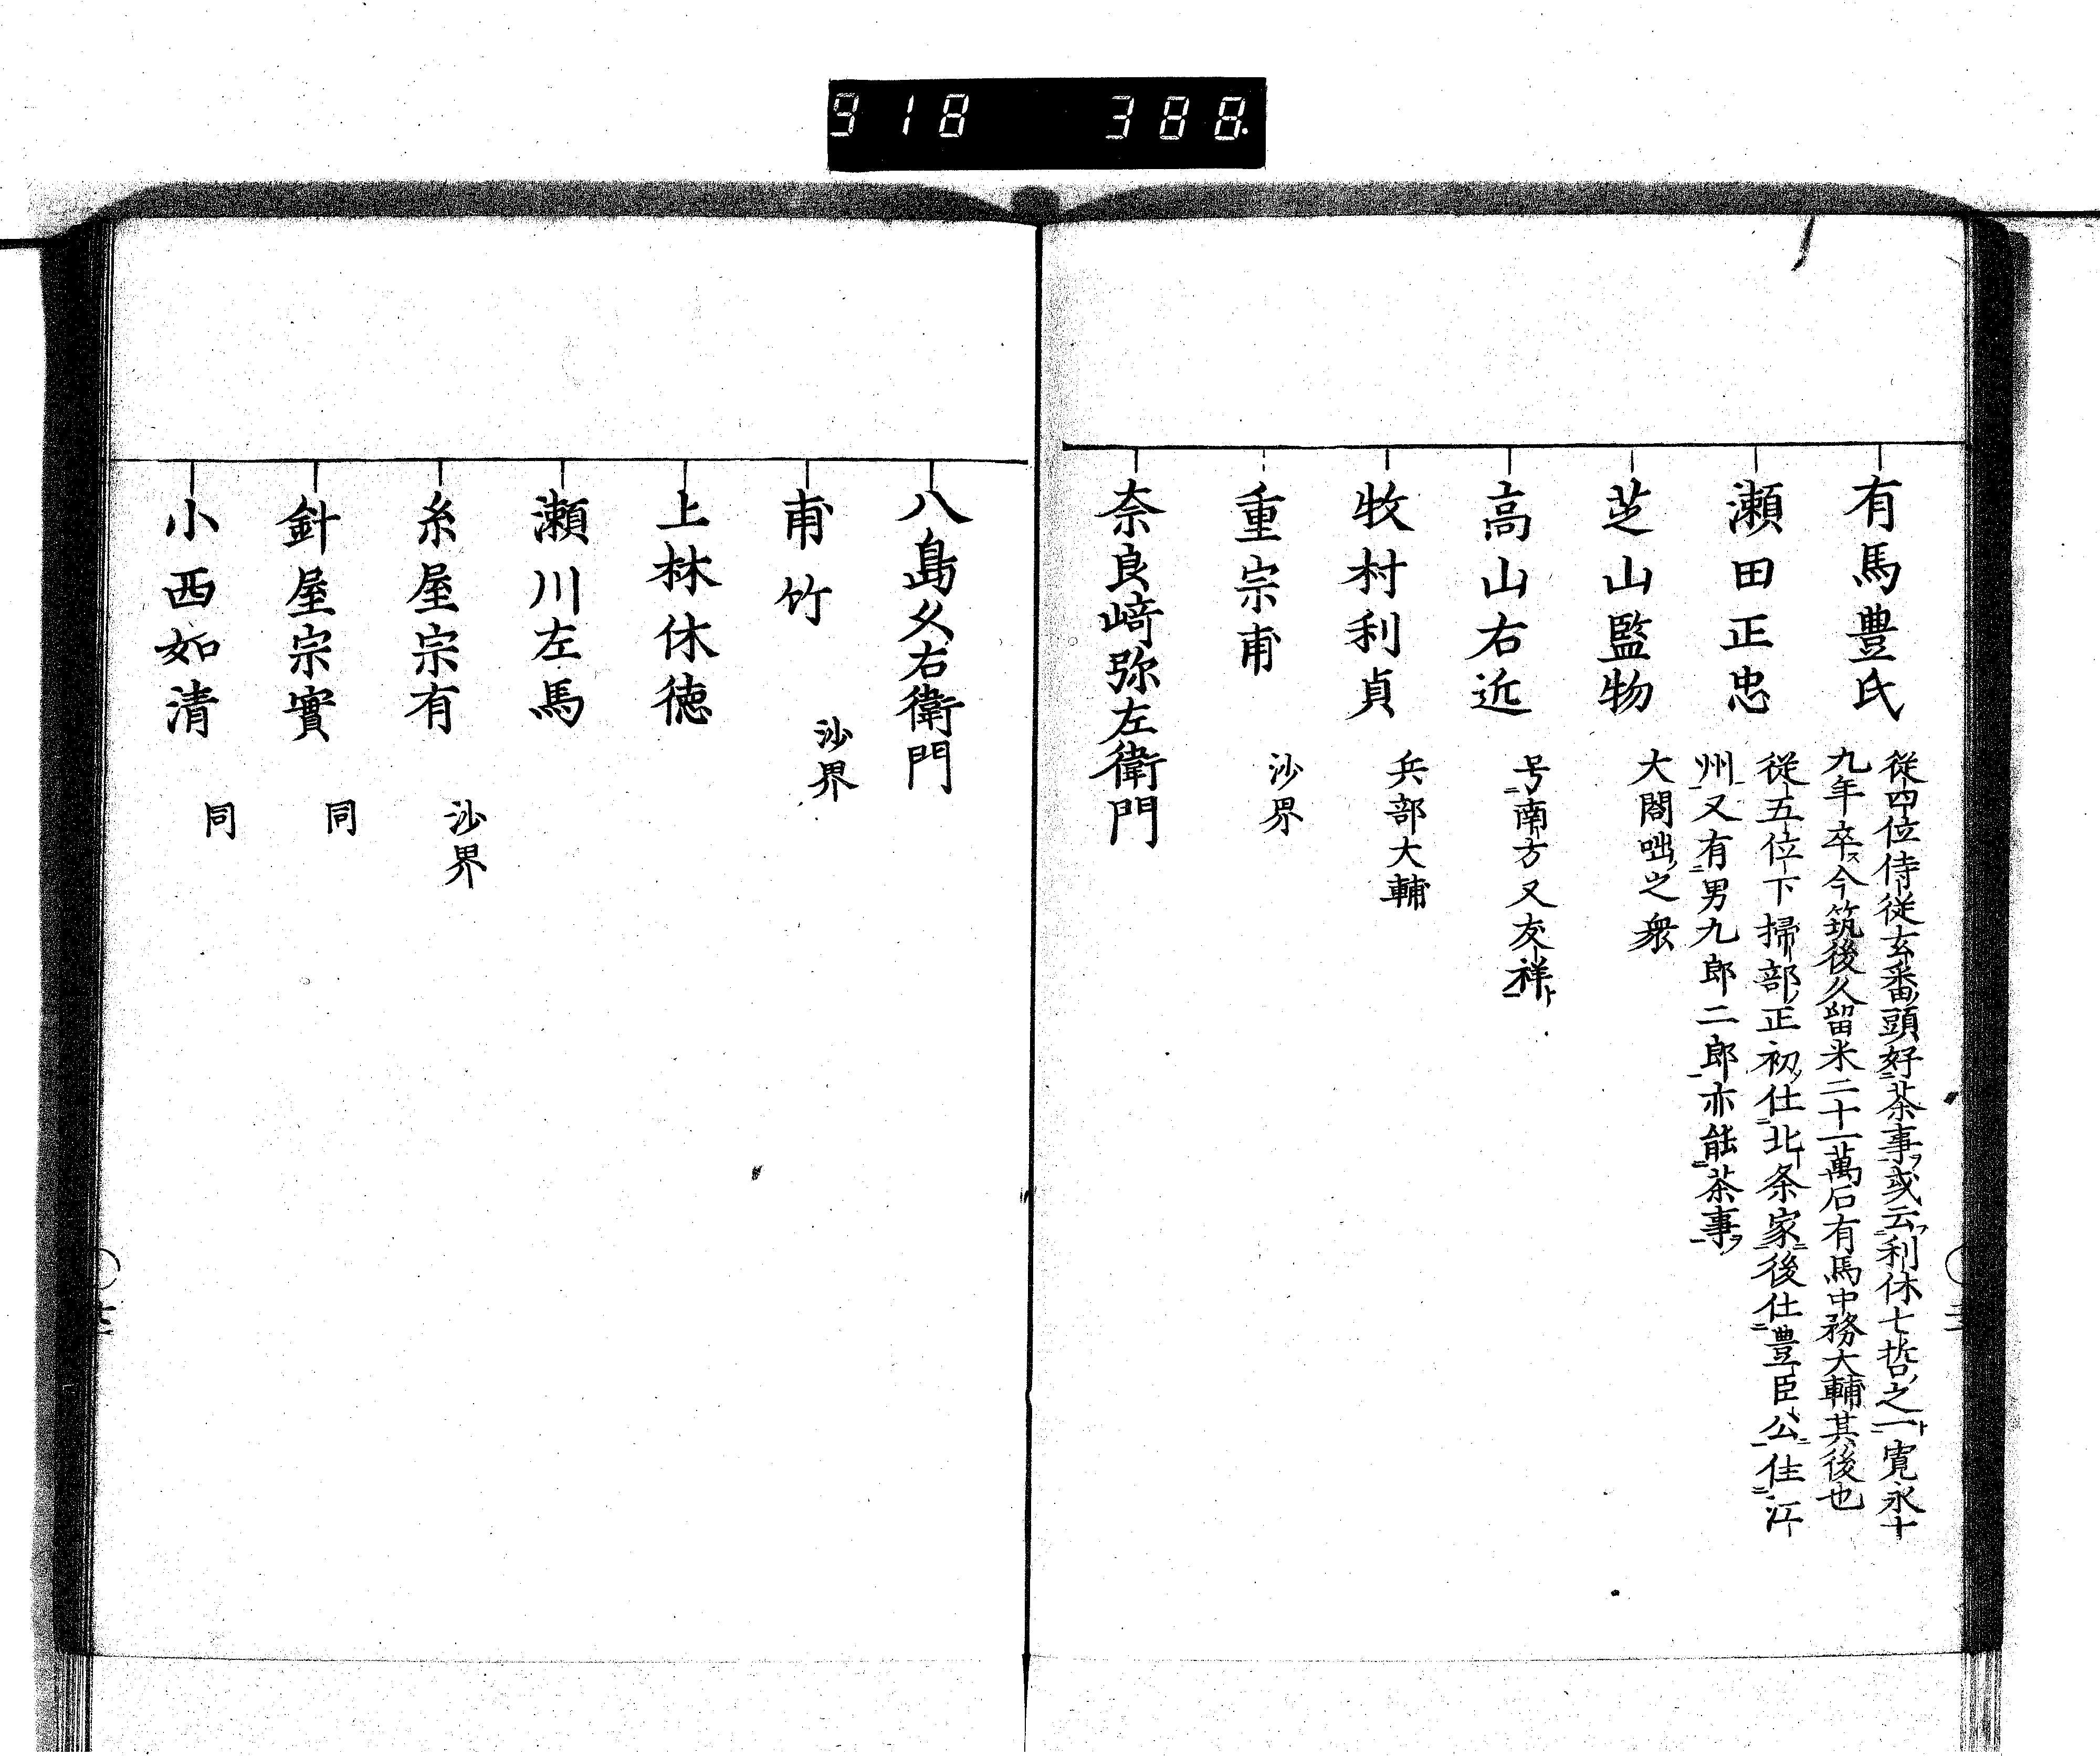 918 388.
有馬豊氏
従四位侍従玄番頭好茶事或云利休七哲之一寛永十
九年卒ス今筑後久留米二十一萬石有馬中務大輔其後也
瀬田正忠
従五位下掃部正初仕北条家後仕豊臣公住江
州又有男九郎二郎亦能茶事
芝山監物
大閤咄之衆
高山右近
号南方又友祥
牧村利貞
兵部大輔
重宗甫
沙界
奈良﨑弥左衛門
八島久右衛門
甫竹
沙界
上林休徳
瀬川左馬
糸屋宗有
沙界
針屋宗實
同
小西如清
同